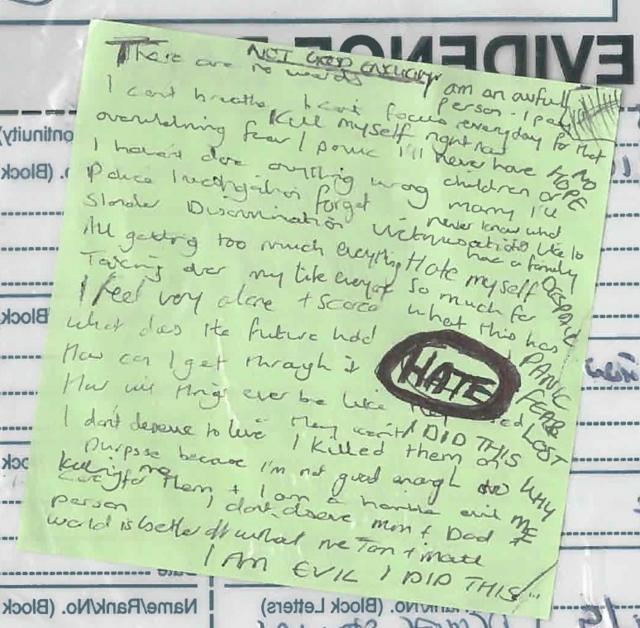 EVIDENCE
NOT GOOD ENOUGH
There are no words
I am an awful person. I pay
I cant breathe I cant focus everyday for that
Kill myself right now
overwhelming fear / panic I'll never have
NO HOPE
I haven't done anything wrong
children or marry I'll
Police Investigation forget never know what
Slander Discrimination Victimisation
its like to have a family
All getting too much everything Hate myself
DESPAIR
Taking over my life everyone So much for
I feel very alone + scared what this has
What does the future hold
PANIC
How can I get through it
HATE
FEAR
How will things ever be like
LOST
I DID THIS
I don't deserve to live I killed them on
WHY
purpose because I'm not good enough to
ME
care for them + I am a horrible evil
Killing me
person I don't deserve Mum + Dad
world is better off without me
I AM EVIL I DID THIS
Block
Name/Rank/No. (Block)
Rank/No. (Block Letters)